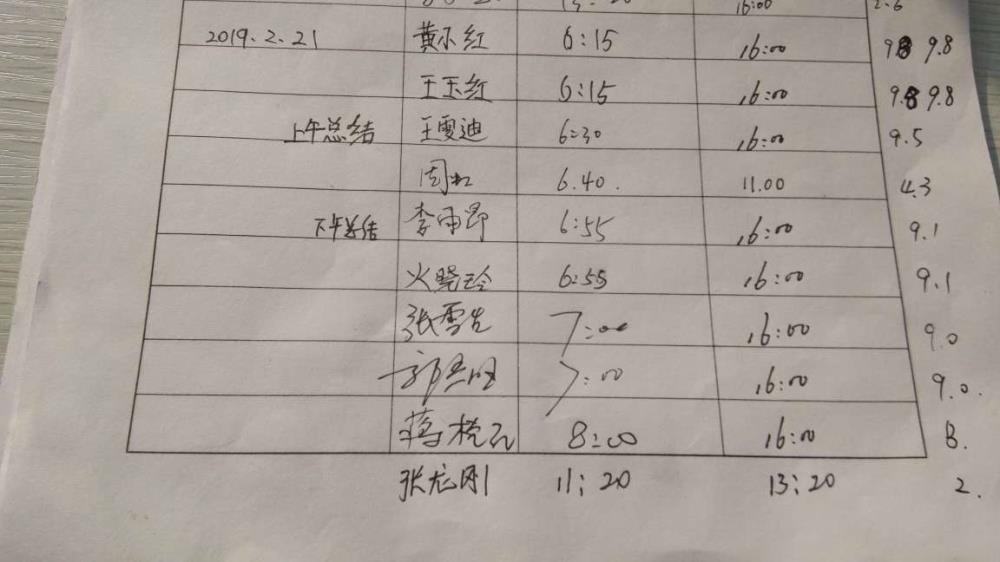 13:20 16:00 2.6
2019.2.21 黄小红 6:15 16:00 9.8 9.8
王玉红 6:15 16:00 9.8 9.8
上午总结 王雯迪 6:30 16:00 9.5
周红 6.40. 11.00 4.3
下午总结 李雨昂 6:55 16:00 9.1
火晓玲 6:55 16:00 9.1
张雪 7:00 16:00 9.0
郭 7:00 16:00 9.0.
蒋 8:00 16:00 8.
张龙刚 11:20 13:20 2.